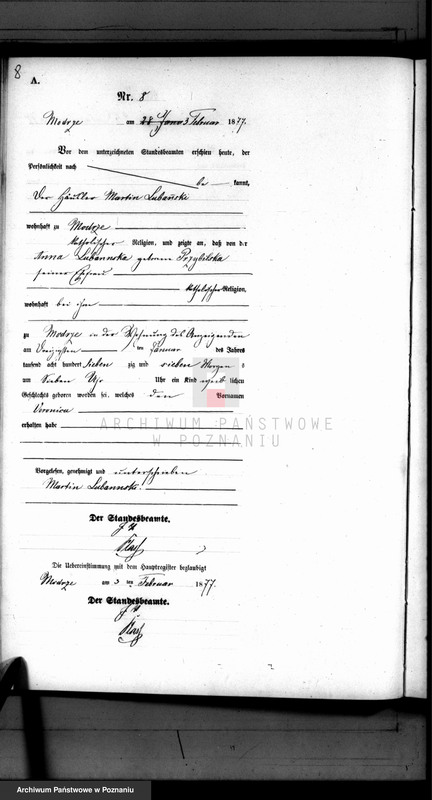 8
A.
Nr. 8
Modrze am 28 Janu 3 Februar 1877.
Vor dem unterzeichneten Standesbeamten erschien heute, der
Persönlichkeit nach
be kannt,
Der Häusler Martin Lubański
wohnhaft zu Modrze
katholischer Religion, und zeigte an, daß von der
Anna Lubannska geborene Przybilska
seiner Ehefrau
katholischer Religion,
wohnhaft bei ihm
zu Modrze in der Wohnung des Anzeigenden
am Dreizigsten ten Januar des Jahres
tausend acht hundert sieben zig und sieben Morgen s
um sieben Uhr Uhr ein Kind weib lichen
Geschlechts geboren worden sei, welches den Vornamen
Veronica
erhalten habe
ARCHIWUM PAŃSTWOWE
W POZNANIU
Vorgelesen, genehmigt und unterschrieben
Martin Lubannski.
Der Standesbeamte.
Die Uebereinstimmung mit dem Hauptregister beglaubigt
Modrze am 3 ten Februar 1877.
Der Standesbeamte.
Archiwum Państwowe w Poznaniu